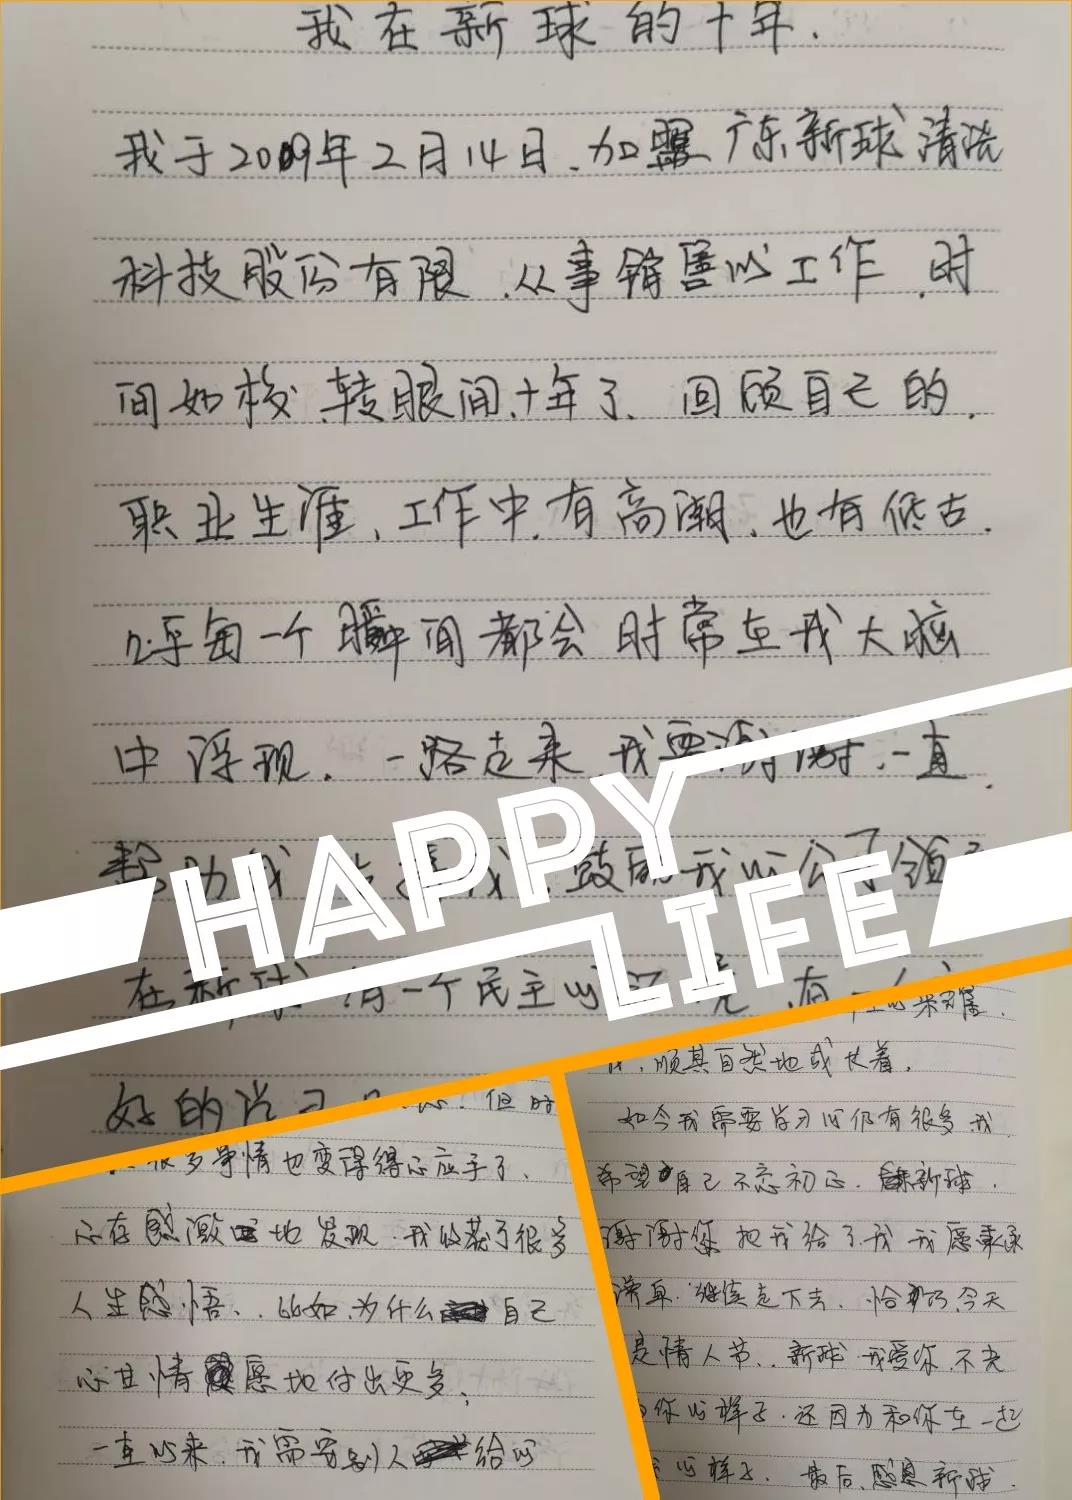 我在新球的十年.
我于2009年2月14日、加盟广东新球清洗
科技股份有限、从事销售的工作、时
间如梭、转眼间、十年了、回顾自己的、
职业生涯、工作中、有高潮、也有低古、
几乎每一个瞬间都会时常在我大脑
中浮现. 一路走来、我要谢谢、一直
帮助我 鼓励我的公司领
在新球、有一个民主的 有一个
好的学习 但
HAPPY
LIFE
很多事情也变得得心应手了、
心存感激地发现、我收获了很多
人生感悟、、比如、为什么自己
心甘情愿地付出更多、
一直以来、我需要别人给的
顺其自然地成长着、
如今我需要学习的仍有很多、我
希望自己不忘初心、新球、
谢谢您把我给了我、我愿乘
继续走下去、恰巧今天
是情人节、、新球、我爱你、不光
你的样子、还因为和你在一起
的样子、最后、感恩新球、